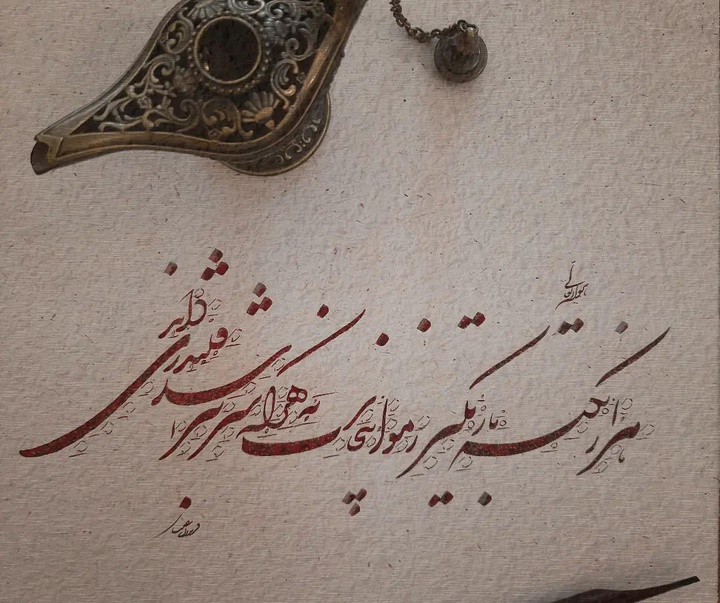 هزار نکته باریکتر ز مو اینجاست نه هر که سر بتراشد قلندری داند